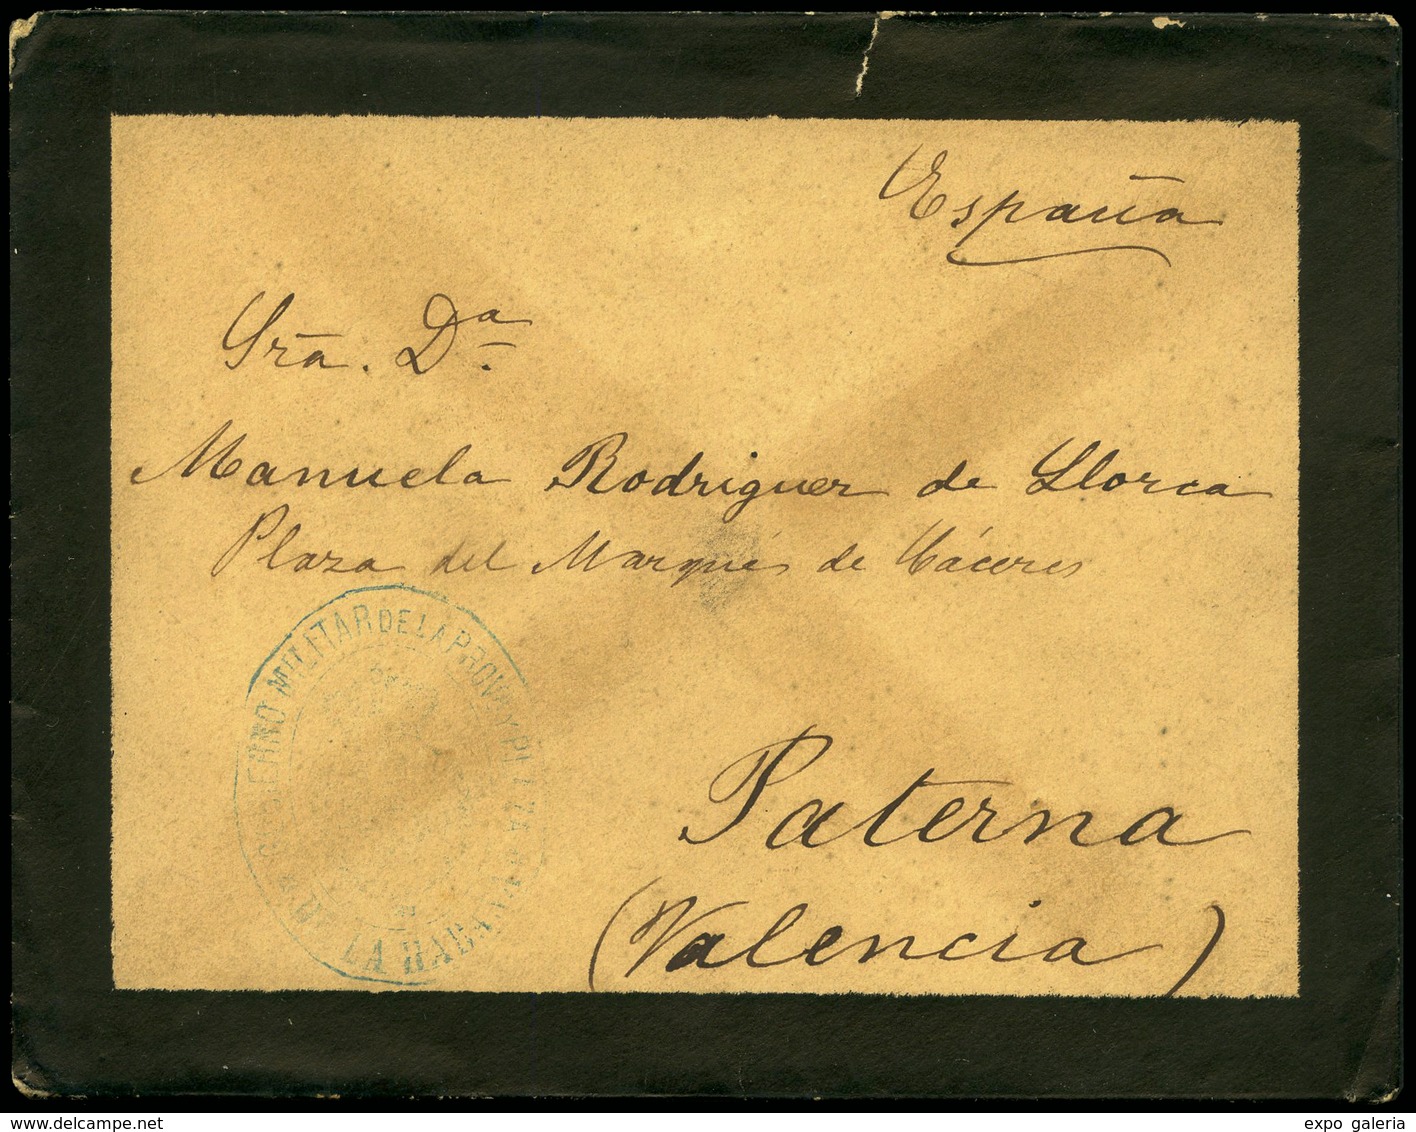 España
Sra. Dª
Manuela Rodriguez de Llorca
Plaza del Marqués de Cáceres
GOBIERNO MILITAR DE LA PROV.ª Y PLAZA
LA HABANA
Paterna
(Valencia)
delcampe.net
expo galeria